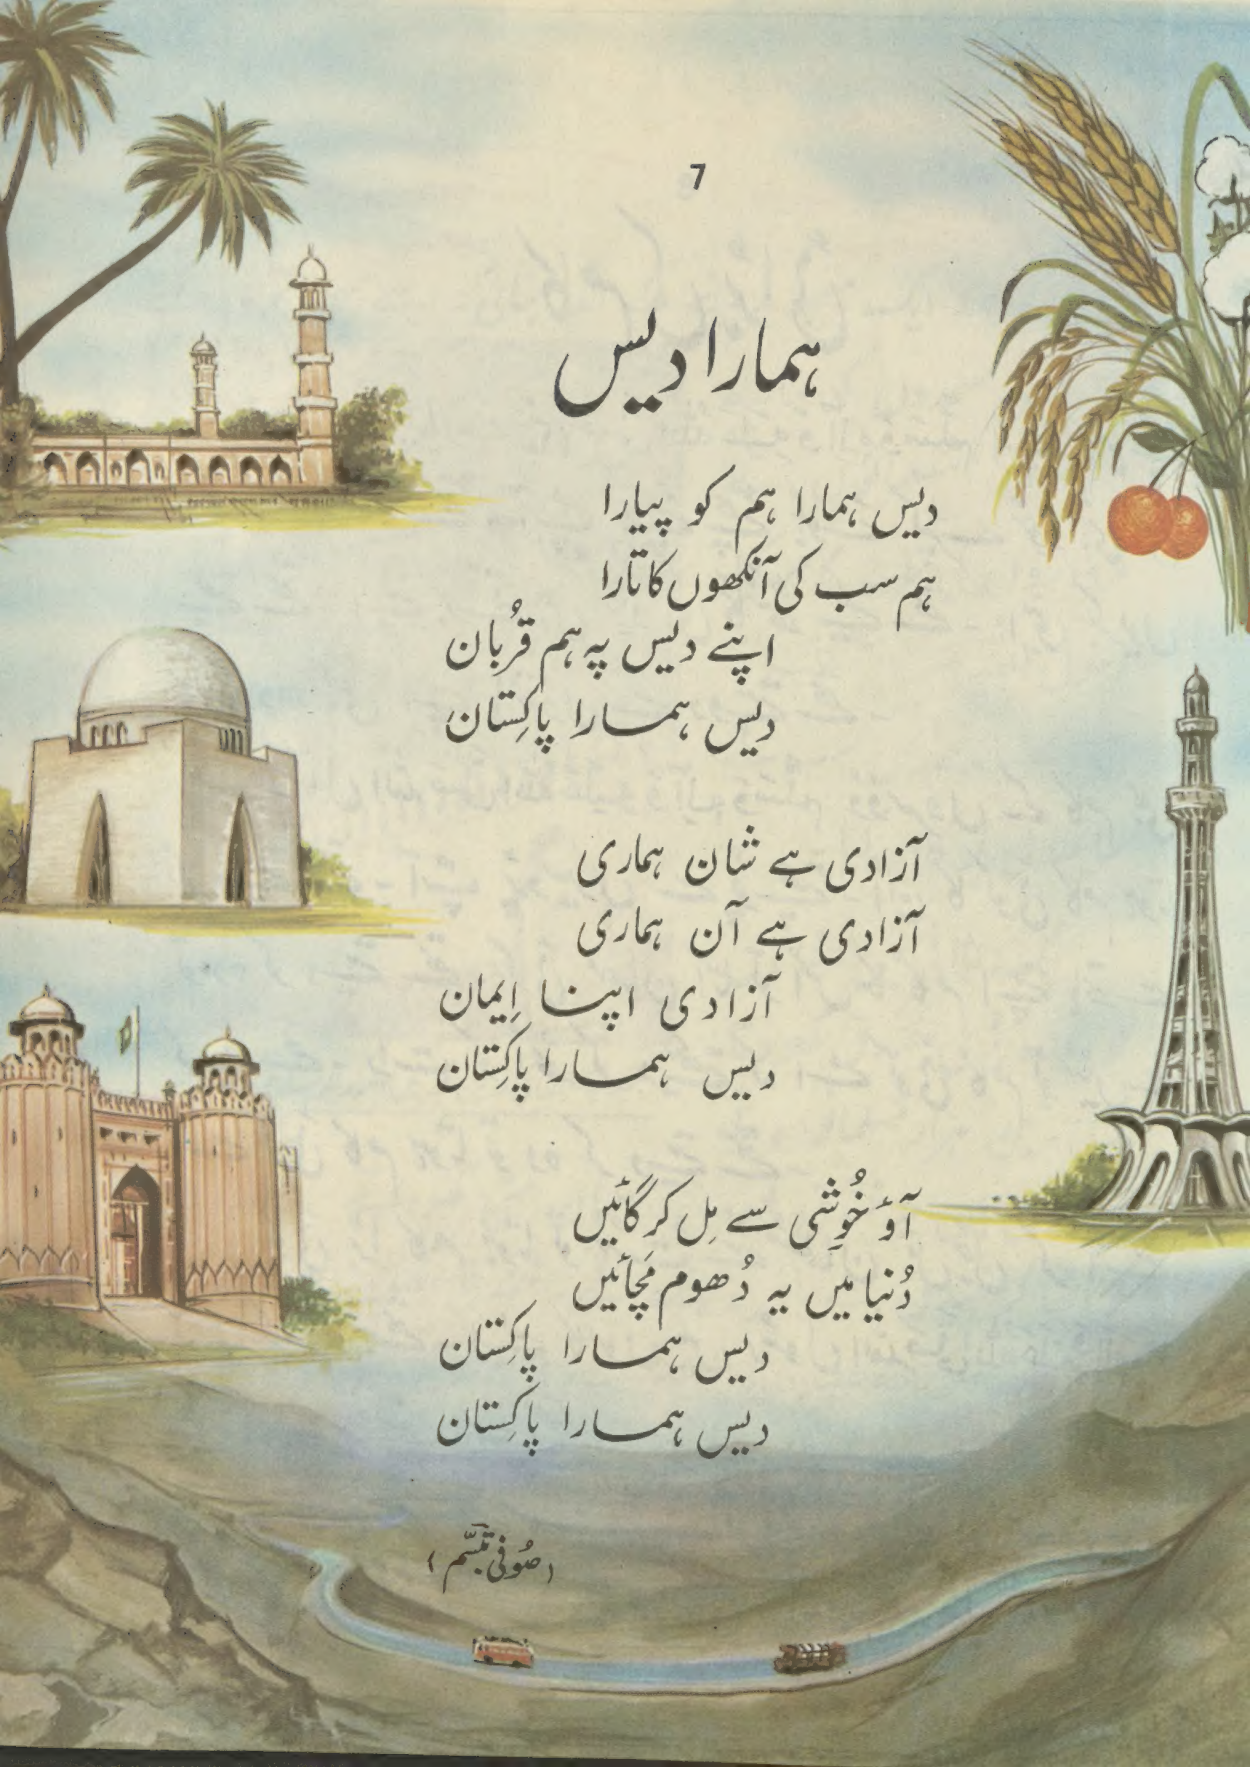 7
ہمارا دیس
دیس ہمارا ہم کو پیارا
ہم سب کی آنکھوں کا تارا
اپنے دیس پہ ہم قُربان
دیس ہمارا پاکِستان
آزادی ہے شان ہماری
آزادی ہے آن ہماری
آزادی اپنا اِیمان
دیس ہمارا پاکِستان
آؤ خُوشی سے مِل کر گائیں
دُنیا میں یہ دُھوم مَچائیں
دیس ہمارا پاکِستان
دیس ہمارا پاکِستان
(صُوفی تبَسّم)